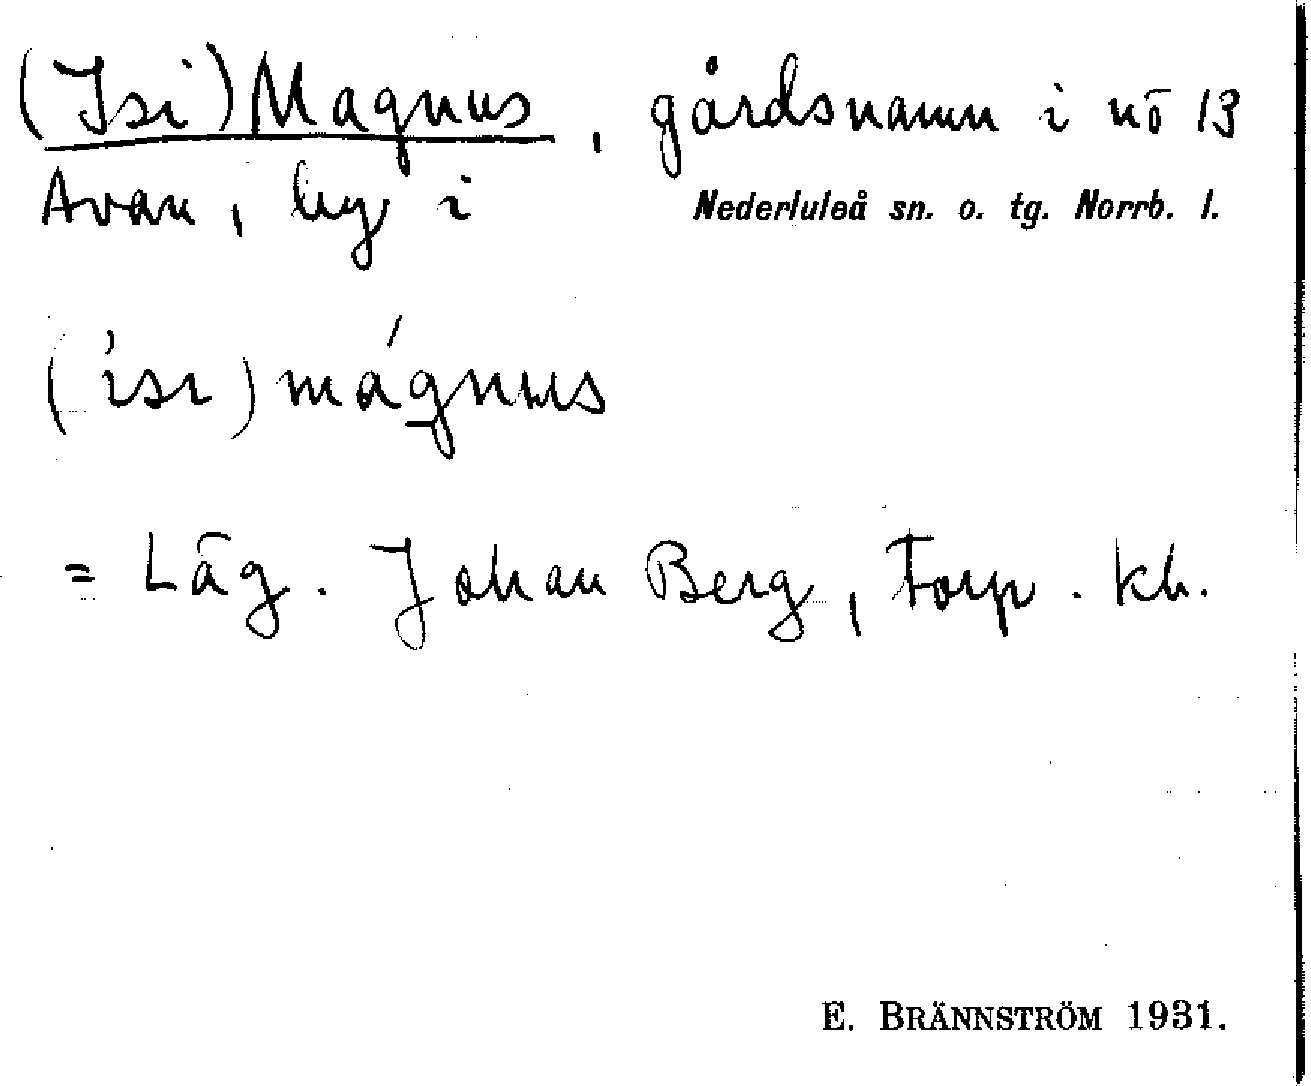 (Isi)Magnus, gårdsnamn i nō 13
Avan, by i Nederluleå sn. o. tg. Norrb. l.
(ísı) mágnus
= Läg. Johan Berg, Torp. kh.
E. BRÄNNSTRÖM 1931.